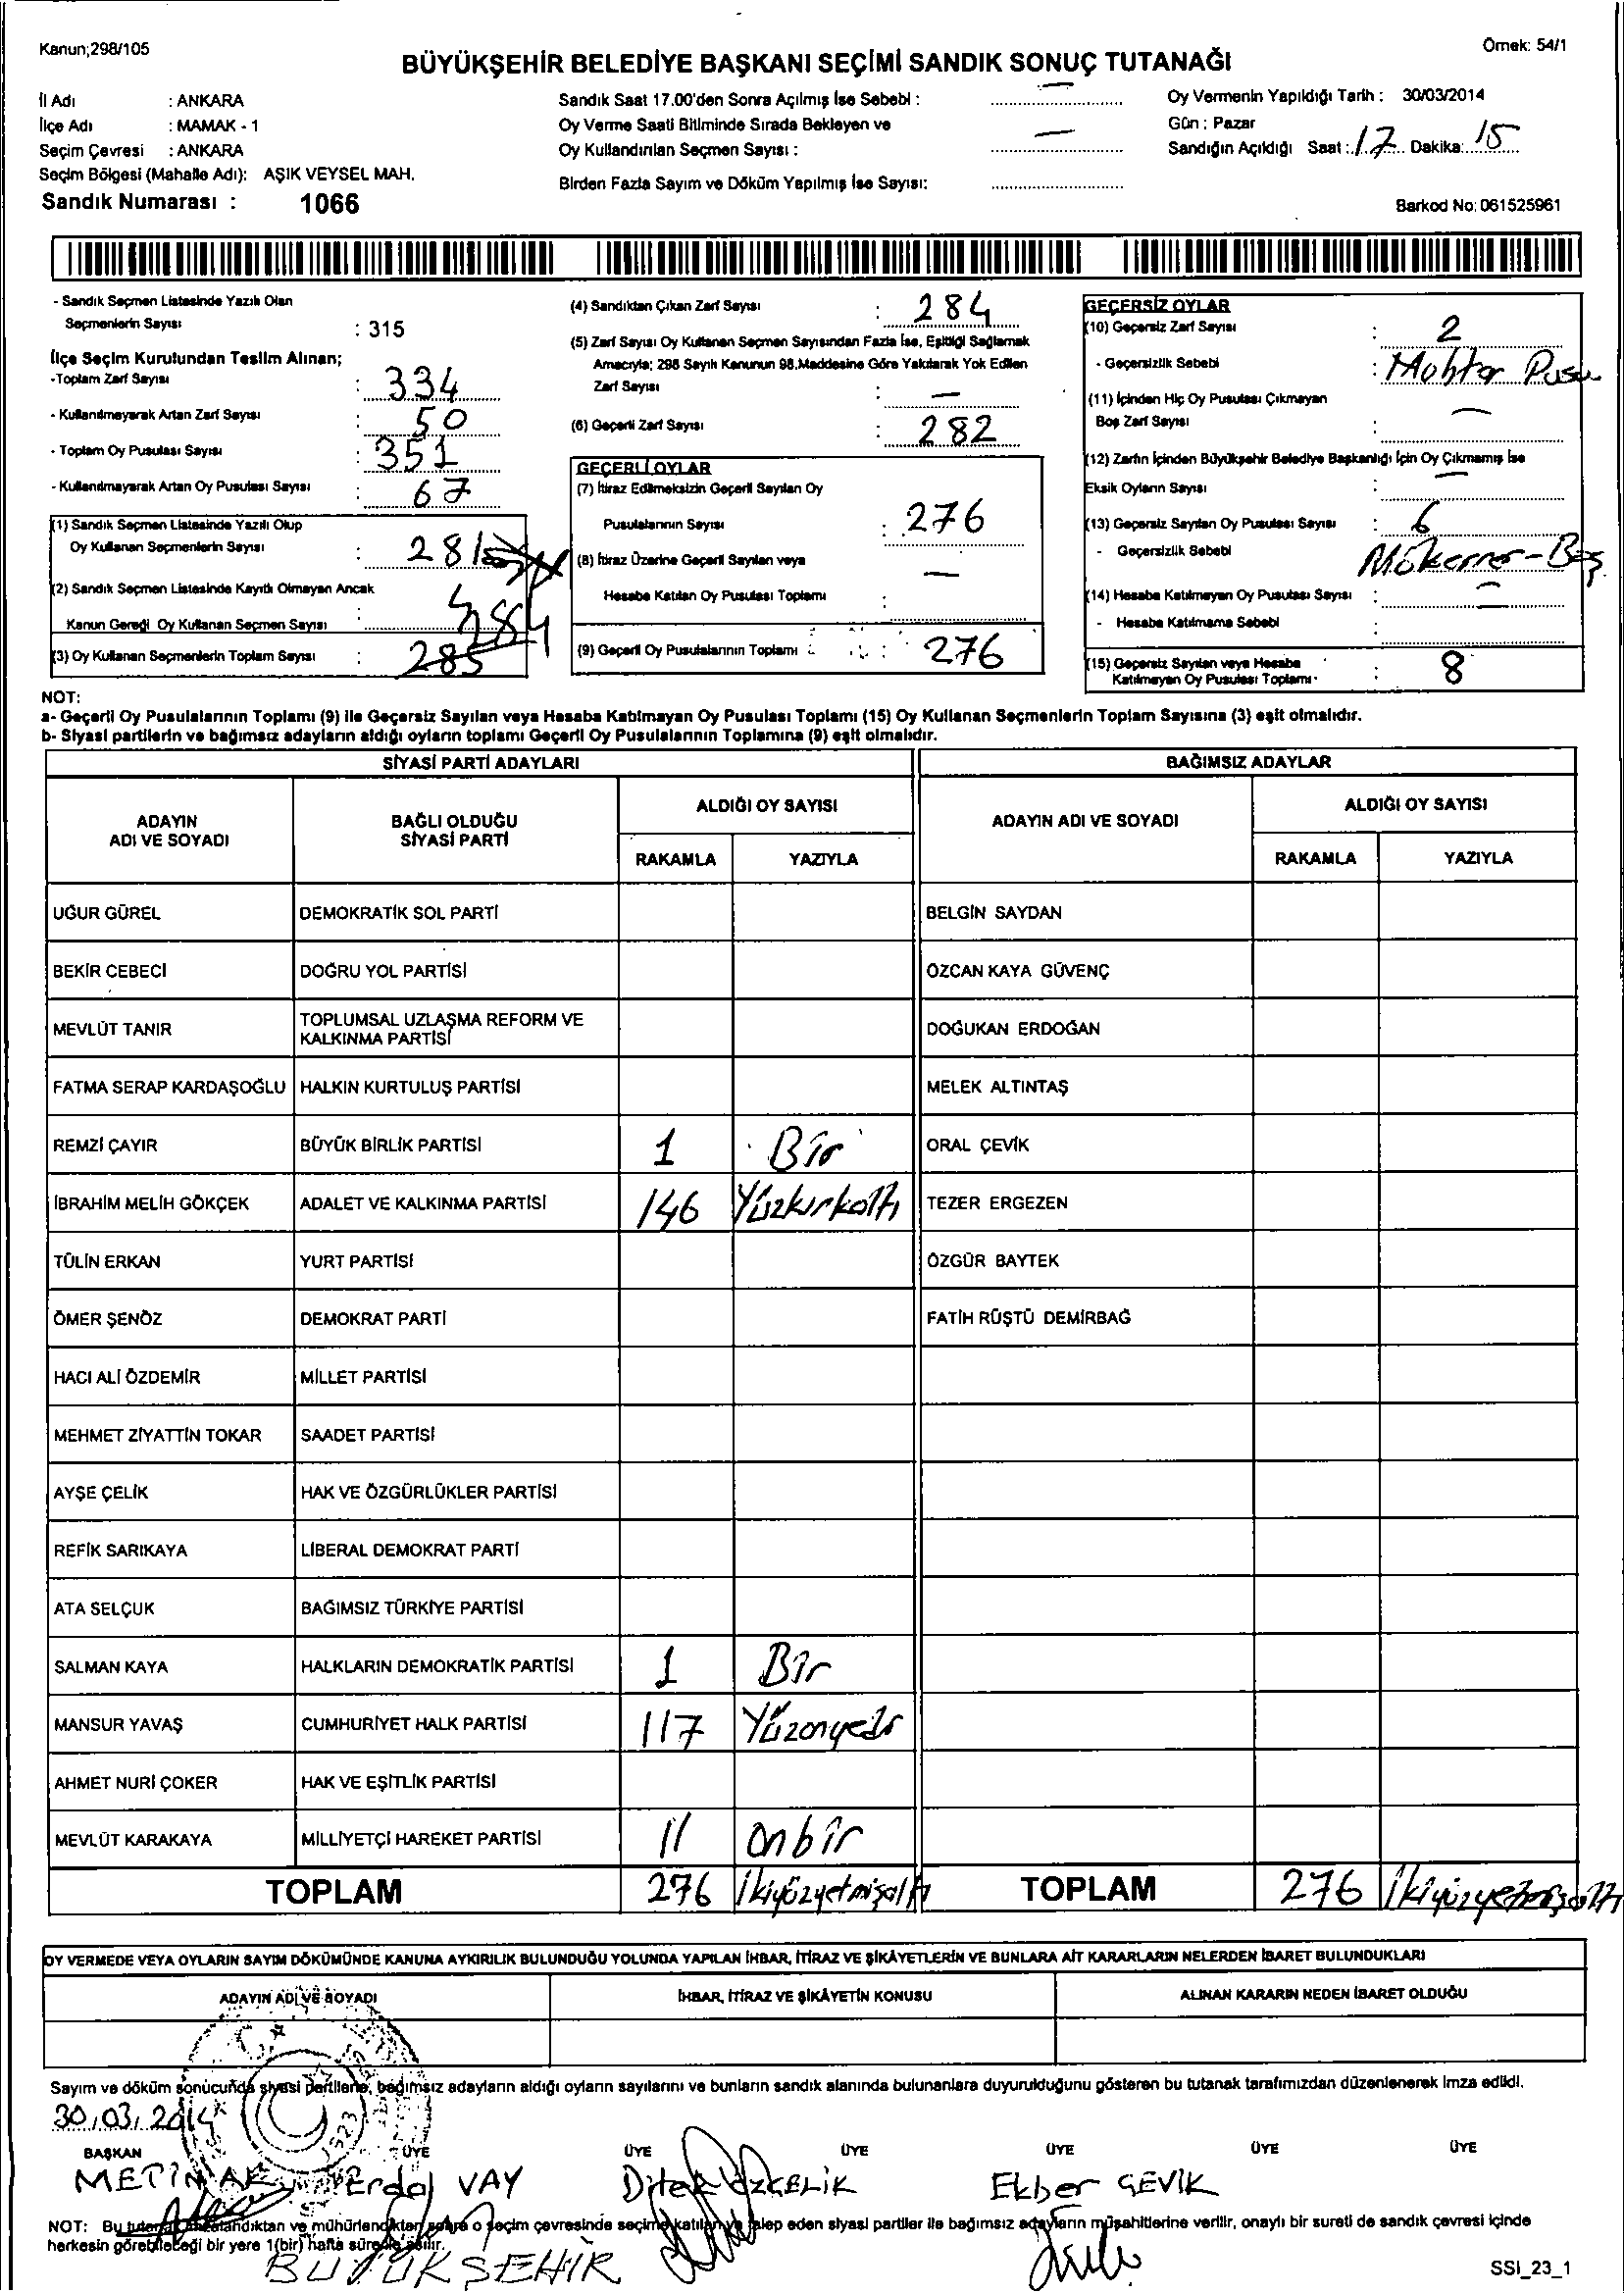 Kanun;298/105
Örnek: 54/1
BÜYÜKŞEHİR BELEDİYE BAŞKANI SEÇİMİ SANDIK SONUÇ TUTANAĞI
İl Adı : ANKARA
İlçe Adı : MAMAK - 1
Seçim Çevresi : ANKARA
Seçim Bölgesi (Mahalle Adı): AŞIK VEYSEL MAH.
Sandık Numarası : 1066
Sandık Saat 17.00'den Sonra Açılmış İse Sebebi : —
Oy Verme Saati Bitiminde Sırada Bekleyen ve
Oy Kullandırılan Seçmen Sayısı : —
Birden Fazla Sayım ve Döküm Yapılmış İse Sayısı:
Oy Vermenin Yapıldığı Tarih : 30/03/2014
Gün : Pazar
Sandığın Açıldığı Saat : 17 Dakika: 15
Barkod No: 061525961
- Sandık Seçmen Listesinde Yazılı Olan
Seçmenlerin Sayısı : 315
İlçe Seçim Kurulundan Teslim Alınan;
-Toplam Zarf Sayısı : 334
- Kullanılmayarak Artan Zarf Sayısı : 50
- Toplam Oy Pusulası Sayısı : 351
- Kullanılmayarak Artan Oy Pusulası Sayısı : 67
(1) Sandık Seçmen Listesinde Yazılı Olup
Oy Kullanan Seçmenlerin Sayısı :
(2) Sandık Seçmen Listesinde Kayıtlı Olmayan Ancak
Kanun Gereği Oy Kullanan Seçmen Sayısı :
(3) Oy Kullanan Seçmenlerin Toplam Sayısı : 285 284
(4) Sandıktan Çıkan Zarf Sayısı : 284
(5) Zarf Sayısı Oy Kullanan Seçmen Sayısından Fazla İse, Eşitliği Sağlamak
Amacıyla; 298 Sayılı Kanunun 98.Maddesine Göre Yakılarak Yok Edilen
Zarf Sayısı : —
(6) Geçerli Zarf Sayısı : 282
GEÇERLİ OYLAR
(7) İtiraz Edilmeksizin Geçerli Sayılan Oy
Pusulalarının Sayısı : 276
(8) İtiraz Üzerine Geçerli Sayılan veya
Hesaba Katılan Oy Pusulası Toplamı : —
(9) Geçerli Oy Pusulalarının Toplamı : 276
GEÇERSİZ OYLAR
(10) Geçersiz Zarf Sayısı : 2
- Geçersizlik Sebebi : Muhtar Pusu
(11) İçinden Hiç Oy Pusulası Çıkmayan
Boş Zarf Sayısı : —
(12) Zarfın İçinden Büyükşehir Belediye Başkanlığı İçin Oy Çıkmamış İse
Eksik Oyların Sayısı : —
(13) Geçersiz Sayılan Oy Pusulası Sayısı : 6
- Geçersizlik Sebebi Mükerrer-Boş
(14) Hesaba Katılmayan Oy Pusulası Sayısı : —
- Hesaba Katılmama Sebebi :
(15) Geçersiz Sayılan veya Hesaba
Katılmayan Oy Pusulası Toplamı : 8
NOT:
a- Geçerli Oy Pusulalarının Toplamı (9) ile Geçersiz Sayılan veya Hesaba Katılmayan Oy Pusulası Toplamı (15) Oy Kullanan Seçmenlerin Toplam Sayısına (3) eşit olmalıdır.
b- Siyasi partilerin ve bağımsız adayların aldığı oyların toplamı Geçerli Oy Pusulalarının Toplamına (9) eşit olmalıdır.
SİYASİ PARTİ ADAYLARI
BAĞIMSIZ ADAYLAR
ADAYIN ADI VE SOYADI
BAĞLI OLDUĞU SİYASİ PARTİ
ALDIĞI OY SAYISI
RAKAMLA YAZIYLA
ADAYIN ADI VE SOYADI
ALDIĞI OY SAYISI
RAKAMLA YAZIYLA
UĞUR GÜREL DEMOKRATİK SOL PARTİ BELGİN SAYDAN
BEKİR CEBECİ DOĞRU YOL PARTİSİ ÖZCAN KAYA GÜVENÇ
MEVLÜT TANIR TOPLUMSAL UZLAŞMA REFORM VE KALKINMA PARTİSİ DOĞUKAN ERDOĞAN
FATMA SERAP KARDAŞOĞLU HALKIN KURTULUŞ PARTİSİ MELEK ALTINTAŞ
REMZİ ÇAYIR BÜYÜK BİRLİK PARTİSİ 1 Bir ORAL ÇEVİK
İBRAHİM MELİH GÖKÇEK ADALET VE KALKINMA PARTİSİ 146 Yüzkırkaltı TEZER ERGEZEN
TÜLİN ERKAN YURT PARTİSİ ÖZGÜR BAYTEK
ÖMER ŞENÖZ DEMOKRAT PARTİ FATİH RÜŞTÜ DEMİRBAĞ
HACI ALİ ÖZDEMİR MİLLET PARTİSİ
MEHMET ZİYATTİN TOKAR SAADET PARTİSİ
AYŞE ÇELİK HAK VE ÖZGÜRLÜKLER PARTİSİ
REFİK SARIKAYA LİBERAL DEMOKRAT PARTİ
ATA SELÇUK BAĞIMSIZ TÜRKİYE PARTİSİ
SALMAN KAYA HALKLARIN DEMOKRATİK PARTİSİ 1 Bir
MANSUR YAVAŞ CUMHURİYET HALK PARTİSİ 117 Yüzonyedi
AHMET NURİ ÇOKER HAK VE EŞİTLİK PARTİSİ
MEVLÜT KARAKAYA MİLLİYETÇİ HAREKET PARTİSİ 11 onbir
TOPLAM 276 İkiyüzyetmişaltı TOPLAM 276 İkiyüzyetmişaltı
OY VERMEDE VEYA OYLARIN SAYIM DÖKÜMÜNDE KANUNA AYKIRILIK BULUNDUĞU YOLUNDA YAPILAN İHBAR, İTİRAZ VE ŞİKÂYETLERİN VE BUNLARA AİT KARARLARIN NELERDEN İBARET BULUNDUKLARI
ADAYIN ADI VE SOYADI
İHBAR, İTİRAZ VE ŞİKÂYETİN KONUSU
ALINAN KARARIN NEDEN İBARET OLDUĞU
Sayım ve döküm sonucunda siyasi partilerle, bağımsız adayların aldığı oyların sayılarını ve bunların sandık alanında bulunanlara duyurulduğunu gösteren bu tutanak tarafımızdan düzenlenerek imza edildi.
30.03.2014
BAŞKAN ÜYE ÜYE ÜYE ÜYE ÜYE ÜYE
METİN AK Erdal VAY Dilek ÖZÇELİK Ekber ÇEVİK
NOT: Bu tutanak imzalandıktan ve mühürlendikten sonra o seçim çevresinde seçime katılan ve talep eden siyasi partiler ile bağımsız adayların müşahitlerine verilir, onaylı bir sureti de sandık çevresi içinde
herkesin görebileceği bir yere 1(bir) hafta süreyle asılır.
BÜYÜKŞEHİR
SSI_23_1